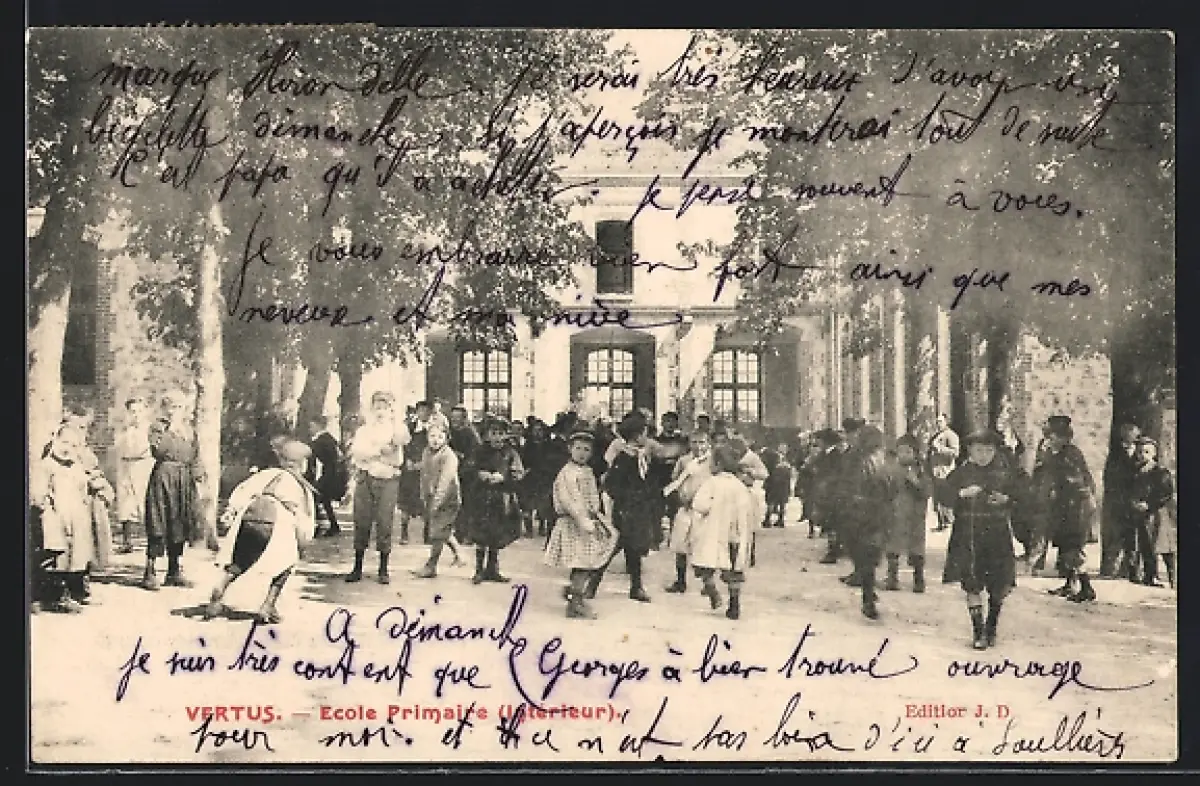 marque Hirondelle. Je serai très heureux d'avoir une
biciclette dimanche, si j'aperçois je monterai tout de suite
C'est papa qu'il a acheter. je pense souvent à vous.
Je vous embrasse bien fort ainsi que mes
neveux et ma nièce
A dimanche
je suis très content que Georges à bien trouvé ouvrage
VERTUS. — Ecole Primaire (Intérieur).
Editior J. D
pour moi. et n'est pas loin d'ici à Soullièrs